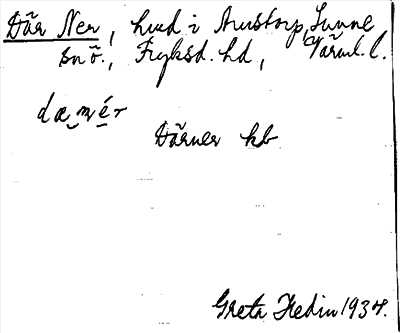 Där Ner, hud i Arnstorp, Sunne
sn ö., Fryksd. hd, Värml. l.
dæ mér
Därner kb
Greta Hedin 1934.